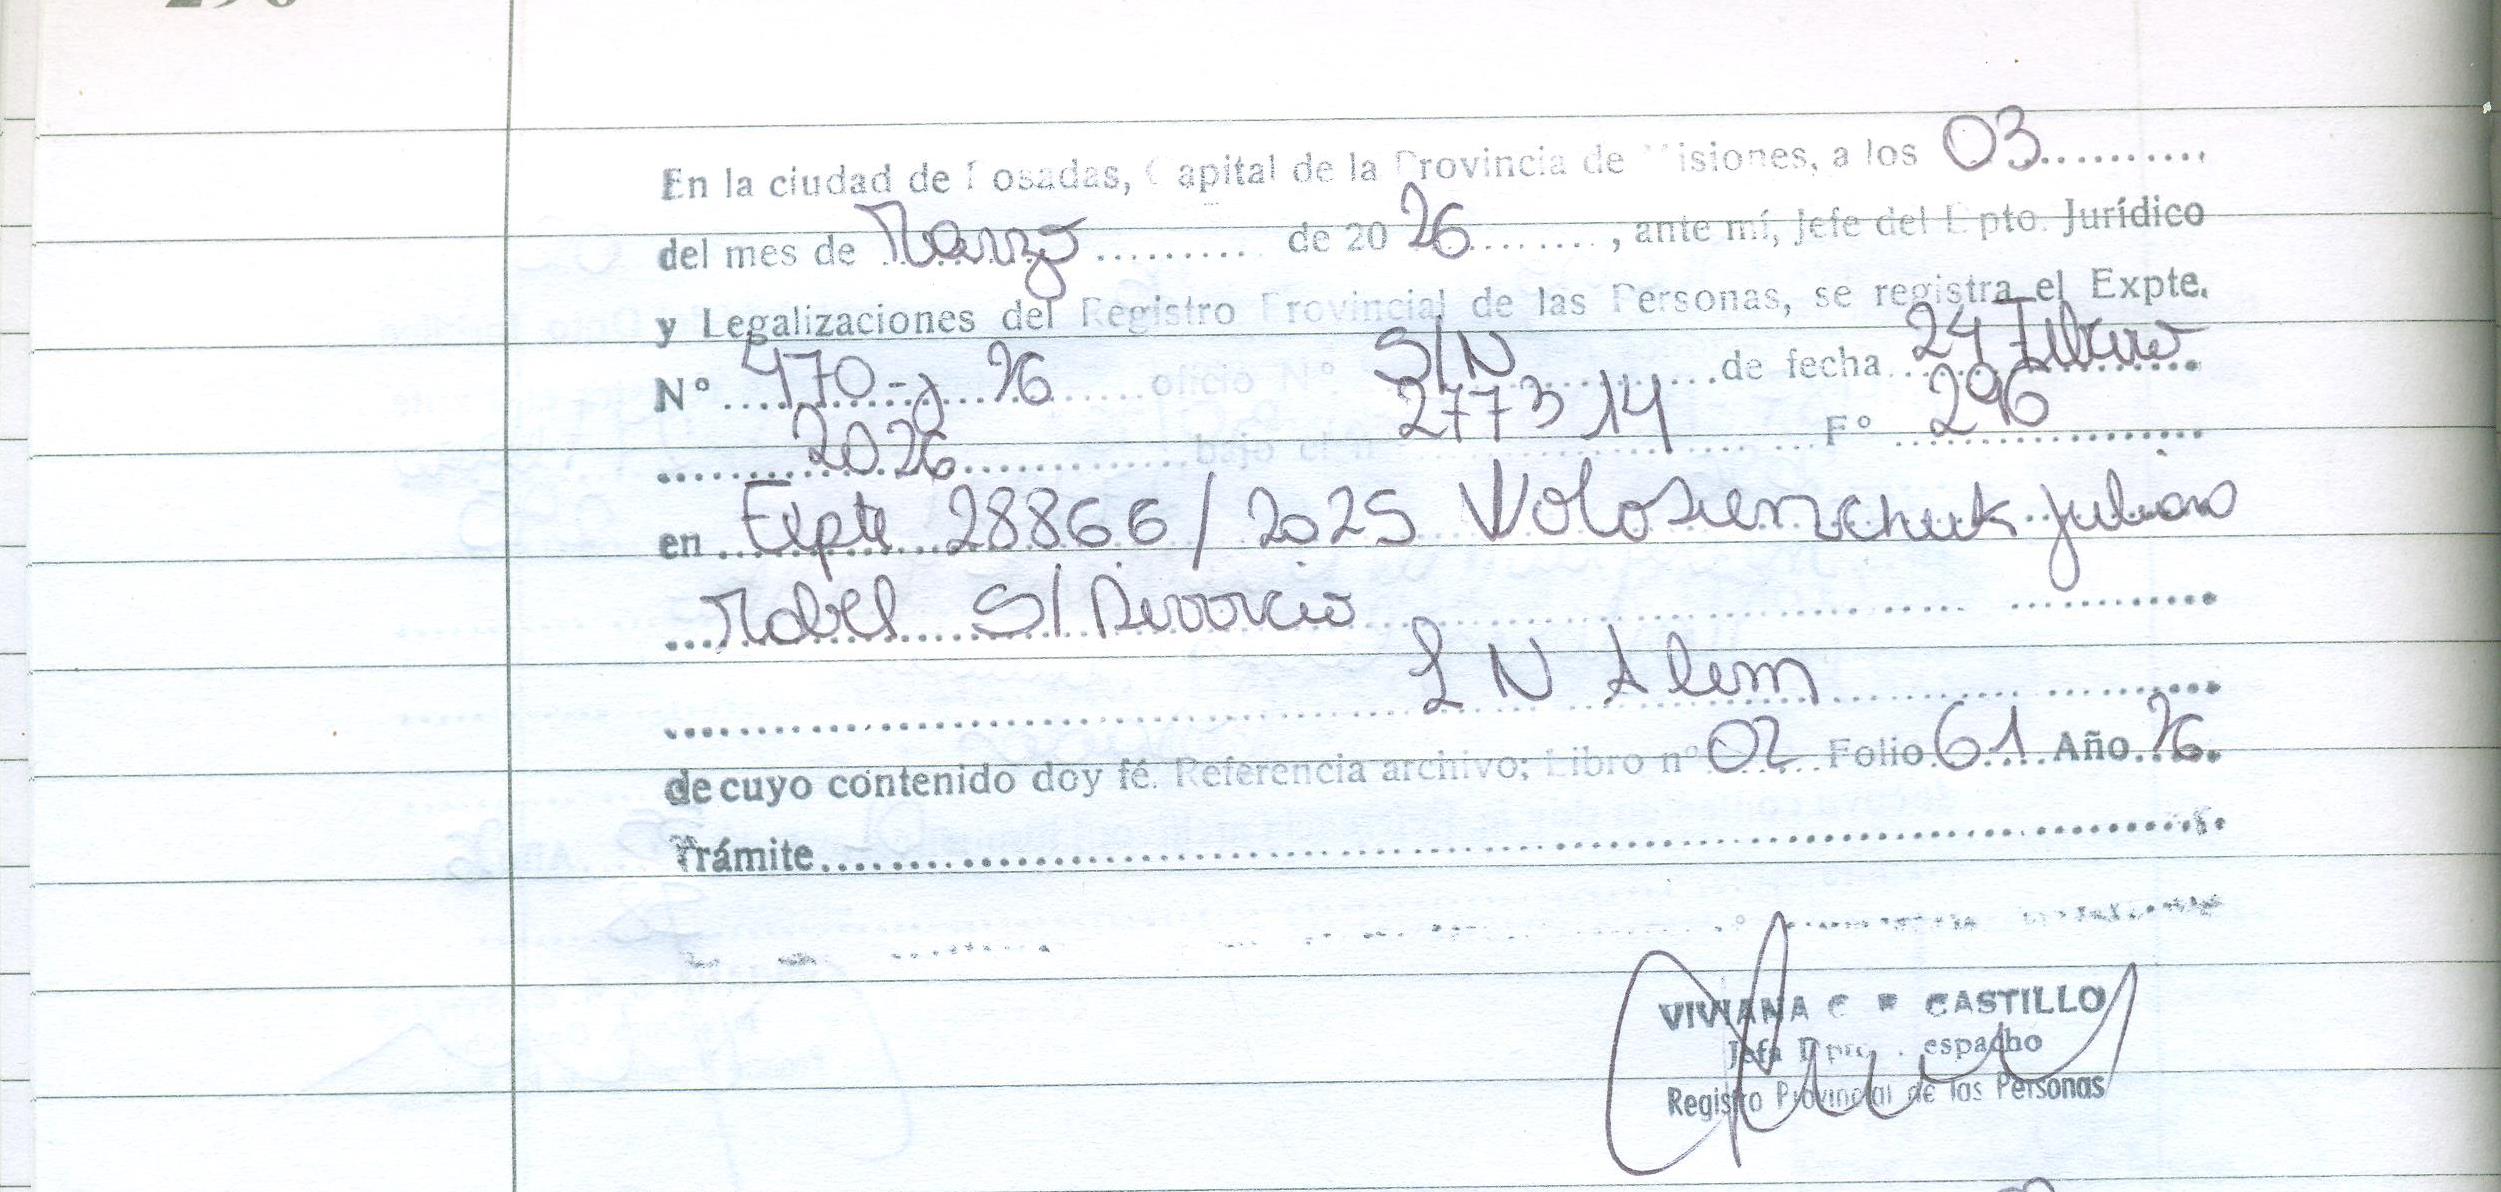 296
En la ciudad de Posadas, Capital de la Provincia de Misiones, a los 03
del mes de Marzo de 2026, ante mí, Jefe del Dpto. Jurídico
y Legalizaciones del Registro Provincial de las Personas, se registra el Expte.
N° 470-J 26 oficio N° S/N de fecha 24 Febrero
2026 bajo el n° 277314 F° 296
en Expte 28866/2025 Wolosienchuk Juliana
Mabel S/Divorcio
L N Alem
de cuyo contenido doy fé. Referencia archivo; Libro n° 02 Folio 61 Año 26.
Trámite
VIVIANA CASTILLO
Jefa Dpto. Despacho
Registro Provincial de las Personas